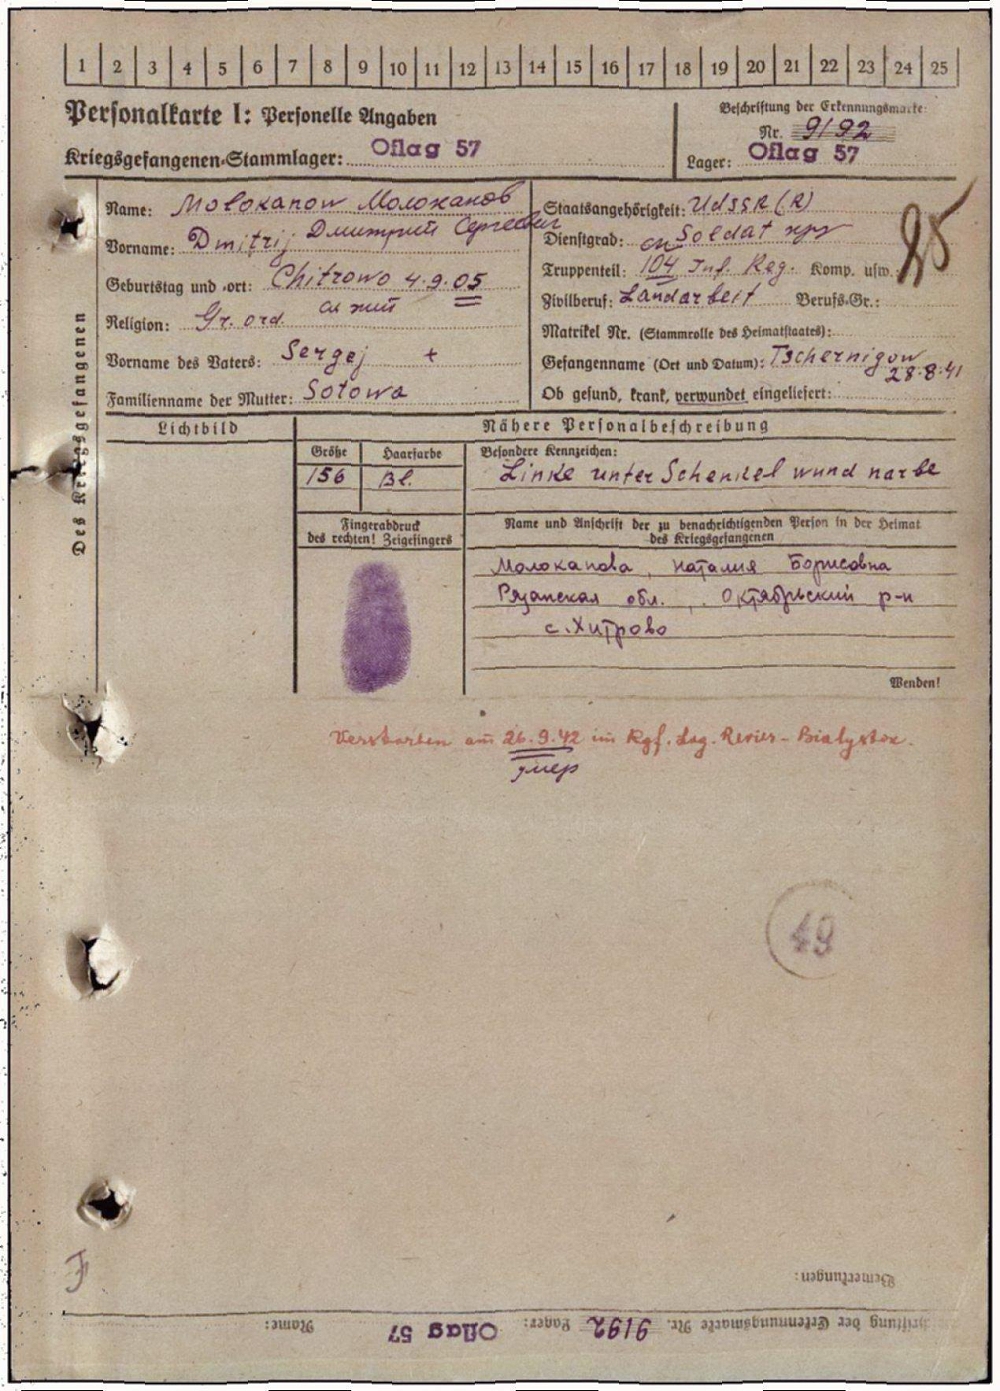 1 2 3 4 5 6 7 8 9 10 11 12 13 14 15 16 17 18 19 20 21 22 23 24 25
Personalkarte I: Personelle Angaben
Kriegsgefangenen-Stammlager: Oflag 57
Beschriftung der Erkennungsmarke
Nr. 9192
Lager: Oflag 57
Des Kriegsgefangenen
Name: Molokanow Молоканов
Vorname: Dmitrij Дмитрий Сергеевич
Geburtstag und -ort: Chitrowo 4.9.05
Religion: Gr. ord.
Vorname des Vaters: Sergej +
Familienname der Mutter: Sotowa
Staatsangehörigkeit: UdSSR (R)
Dienstgrad: Soldat
Truppenteil: 104 Inf. Reg. Komp. usw.:
Zivilberuf: Landarbeit Berufs-Gr.:
Matrikel Nr. (Stammrolle des Heimatstaates):
Gefangenname (Ort und Datum): Tschernigow
28.8.41
Ob gesund, krank, verwundet eingeliefert:
25
Lichtbild
Nähere Personalbeschreibung
Größe Haarfarbe Besondere Kennzeichen:
156 Bl. Linke unter Schenkel wund narbe
Fingerabdruck
des rechten! Zeigefingers
Name und Anschrift der zu benachrichtigenden Person in der Heimat
des Kriegsgefangenen
Молоканова, Наталия Борисовна
Рязанская обл., Октябрьский р-н
с. Хитрово
Wenden!
Verstorben am 26.9.42 im Kgf. Lag. Revier - Bialystok.
умер
49
F
Bemerkungen:
Beschriftung der Erkennungsmarke Nr. 9192 Lager: Oflag 57 Name: